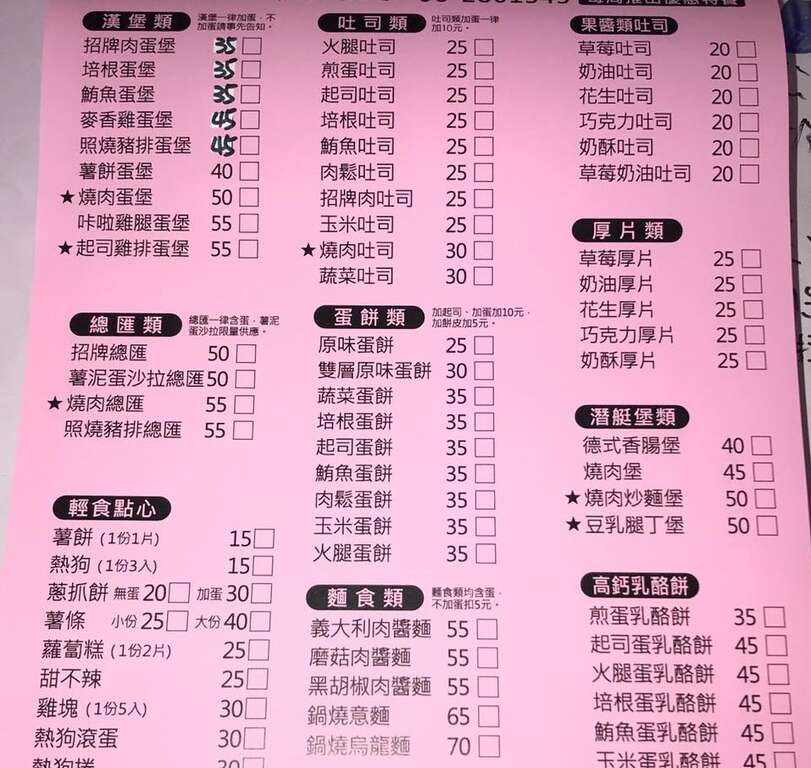 漢堡類 漢堡一律加蛋，不
加蛋請事先告知。
招牌肉蛋堡 35
培根蛋堡 35
鮪魚蛋堡 35
麥香雞蛋堡 45
照燒豬排蛋堡 45
薯餅蛋堡 40
★燒肉蛋堡 50
咔啦雞腿蛋堡 55
★起司雞排蛋堡 55
總匯類 總匯一律含蛋，薯泥
蛋沙拉限量供應。
招牌總匯 50
薯泥蛋沙拉總匯50
★燒肉總匯 55
照燒豬排總匯 55
輕食點心
薯餅 (1份1片) 15
熱狗 (1份3入) 15
蔥抓餅 無蛋 20 加蛋 30
薯條 小份 25 大份 40
蘿蔔糕 (1份2片) 25
甜不辣 25
雞塊 (1份5入) 30
熱狗滾蛋 30
吐司類 吐司類加蛋一律
加10元。
火腿吐司 25
煎蛋吐司 25
起司吐司 25
培根吐司 25
鮪魚吐司 25
肉鬆吐司 25
招牌肉吐司 25
玉米吐司 25
★燒肉吐司 30
蔬菜吐司 30
蛋餅類 加起司、加蛋加10元，
加餅皮加5元。
原味蛋餅 25
雙層原味蛋餅 30
蔬菜蛋餅 35
培根蛋餅 35
起司蛋餅 35
鮪魚蛋餅 35
肉鬆蛋餅 35
玉米蛋餅 35
火腿蛋餅 35
麵食類 麵食類均含蛋，
不加蛋扣5元。
義大利肉醬麵 55
磨菇肉醬麵 55
黑胡椒肉醬麵 55
鍋燒意麵 65
鍋燒烏龍麵 70
果醬類吐司
草莓吐司 20
奶油吐司 20
花生吐司 20
巧克力吐司 20
奶酥吐司 20
草莓奶油吐司 20
厚片類
草莓厚片 25
奶油厚片 25
花生厚片 25
巧克力厚片 25
奶酥厚片 25
潛艇堡類
德式香腸堡 40
燒肉堡 45
★燒肉炒麵堡 50
★豆乳腿丁堡 50
高鈣乳酪餅
煎蛋乳酪餅 35
起司蛋乳酪餅 45
火腿蛋乳酪餅 45
培根蛋乳酪餅 45
鮪魚蛋乳酪餅 45
玉米蛋乳酪餅 45